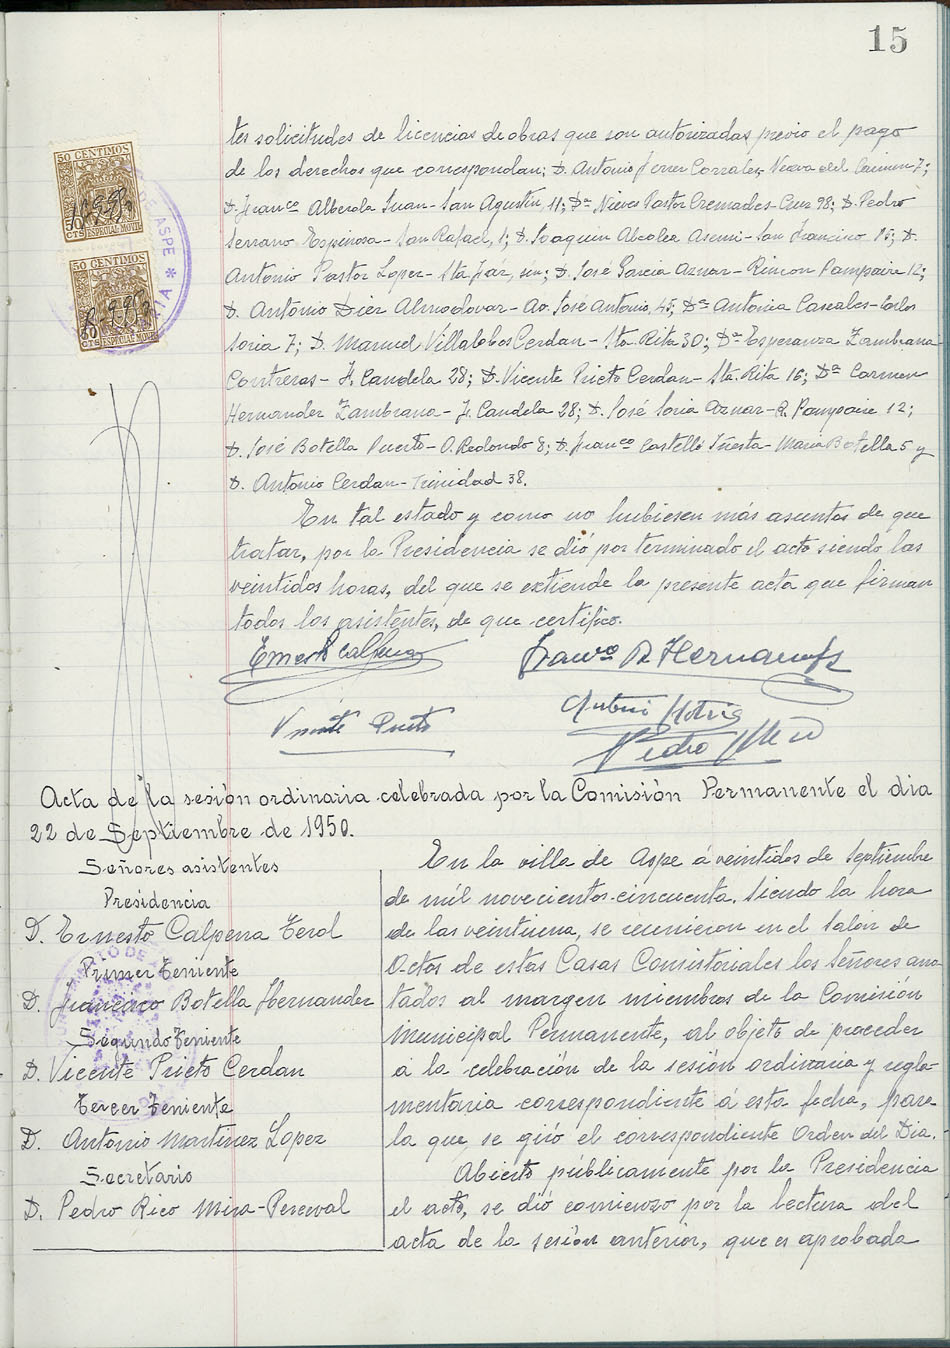 15
50 CENTIMOS
50
CTS ESPECIAL MOVIL
50 CENTIMOS
CTS ESPECIAL MOVIL
DE ASPE *
tes solicitudes de licencias de obras que son autorizadas previo el pago
de los derechos que correspondan; D. Antonio Ferrer Corrales- Nueva del Carmen 7;
D. Franco Alberola Juan- San Agustin, 11; Da Nieves Pastor Cremades- Cruz 98; D. Pedro
Serrano Espinosa- San Rafael, 1; D. Joaquin Alcolea Asensi- San Francisco 15; D.
Antonio Pastor Lopez- Sta. Faz, s/n; D. José Garcia Aznar- Rincon Pampaire 12;
D. Antonio Diez Almodovar- Av. José Antonio, 45; Da Antonia Cascales- Carlos
Soria 7; D. Manuel Villalobos Cerdan- Sta. Rita 30; Da Esperanza Zambrana
Contreras- J. Candela 28; D. Vicente Prieto Cerdan- Sta. Rita 16; Da Carmen
Hernandez Zambrana- J. Candela 28; D. José Soria Aznar- R. Pampaire 12;
D. José Botella Puerto- O. Redondo 8; D. Franco Castelló Iñesta- Maria Botella 5 y
D. Antonio Cerdan- Trinidad 38.
En tal estado y como no hubiesen más asuntos de que
tratar, por la Presidencia se dió por terminado el acto siendo las
veintidos horas, del que se extiende la presente acta que firman
todos los asistentes, de que certifico.
Ernesto Calpena
Franco B. Hernandez
Vicente Prieto
Antonio
Pedro
Acta de la sesión ordinaria celebrada por la Comisión Permanente el dia
22 de Septiembre de 1950.
Señores asistentes
Presidencia
D. Ernesto Calpena Terol
Primer Teniente
D. Francisco Botella Hernandez
Segundo Teniente
D. Vicente Prieto Cerdan
Tercer Teniente
D. Antonio Martinez Lopez
Secretario
D. Pedro Rico Mira-Perceval
En la villa de Aspe á veintidos de Septiembre
de mil novecientos cincuenta. Siendo la hora
de las veintiuna, se reunieron en el Salón de
Actos de estas Casas Consistoriales los Señores ano-
tados al margen miembros de la Comisión
Municipal Permanente, al objeto de proceder
a la celebración de la sesión ordinaria y regla-
mentaria correspondiente á esta fecha, para
la que se giró el correspondiente Orden del Dia.-
Abierto públicamente por la Presidencia
el acto, se dió comienzo por la lectura del
acta de la sesión anterior, que es aprobada